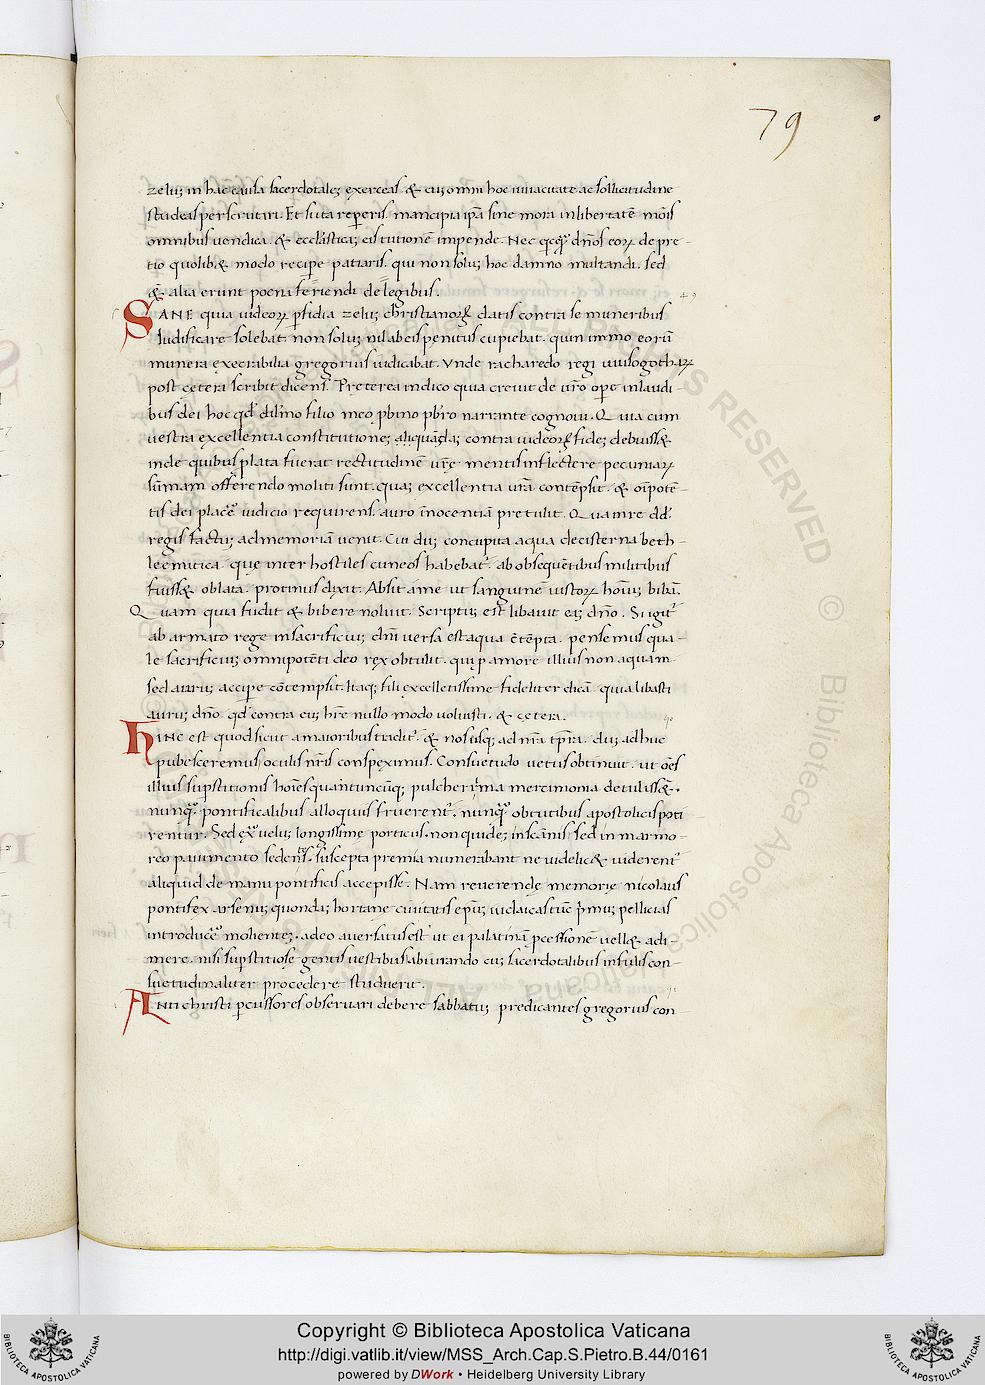 79
zelu; in hac causa sacerdotale; exerceas. & cu; omni hoc vivacitate ac sollicitudine
studeas perscrutari. Et si ita repperis. mancipia ipsa sine mora in libertatē mōis
omnibus vendica. & ecclastica; eis tutionē impende. Nec qcqd dños eorꝝ de pre-
tio quolib& modo recipe patiaris. qui non solu; hoc damno multandi. sed
& alia erunt poena feriendi de legibus.
49
SANE quia iudeorꝝ pfidia zelu; christianorꝝ datis contra se muneribus
ludificare solebat. non solu; nil ab eis penitus cupiebat. quin immo eorū
munera execrabilia gregorius iudicabat. Unde racharedo regi uuisogothaꝝ
post cetera scribit dicens. Preterea indico quia crevit de vr̄o ope in laudi-
bus dei hoc qd dil̄mo filio meo pbino pb̄ro narrante cognovi. Quia cum
vestra excellentia constitutione; aliquanda; contra iudeorꝝ fide; debuiss&
inde quibus plata fuerat rectitudinē vr̄ę mentis inflectere pecuniaꝝ
sūmam offerendo moliti sunt. qua; excellentia vr̄a contēpsit. & oīpotē-
tis dei placē iudicio requirens. auro īnocentiā pretulit. Qua in re dd̄.
regis factu; ad memoriā venit. Cui du; concupita aqua de cisterna beth-
leemitica. que inter hostiles cuneos habebat. ab obsequētibus militibus
fuiss& oblata. protinus dixit. Absit a me ut sanguinē iustorꝝ hoīu; bibā.
Quam quia fudit & bibere noluit. Scriptu; est libavit ea; dn̄o. Si igit̄
ab armato rege in sacrificiu; dn̄i versa est aqua cōtēpta. pensemus qua-
le sacrificiu; omnipotēti deo rex obtulit. qui p amore illius non aquam
sed auru; accipe cōtempsit. Itaq; fili excellētissime fideliter dicā. quia libasti
auru; dn̄o. qd contra eu; hr̄e nullo modo voluisti. & cetera.
50
HINC est quod sicut a maioribus tradit̄. & nos usq; ad nr̄a tp̄ra. du; adhuc
pubesceremus oculis nr̄is conspeximus. Consuetudo vetus obtinuit. ut oēs
illius supstitionis hoīes quantuncūq; pulcherrima mercimonia detulissēt.
nunq̄ pontificalibus alloquiis fruerent̄. nunq̄ obtutibus apostolicis poti
rentur. Sed ex velu; longissime porticus. non quide; in scānis sed in marmo-
reo pavimento sedentes. suscepta premia numerabant ne videlic& viderent̄
aliquid de manu pontificis accepisse. Nam reverende memorie nicolaus
pontifex arseniu; quonda; hortane civitatis epm̄; iudaicas tūc p̄mus pellicias
introducē moliente;. adeo aversatus est ut ei palatinā pcessionē vell& adi-
mere. nisi supstitiose gentis vestibus abiurando cu; sacerdotalibus infulis con-
suetudinaliter procedere studuerit.
51
ANTI christi pcussores observari debere sabbatu; predicantes gregorius con-
ALL RIGHTS RESERVED
© Biblioteca Apostolica Vaticana
Copyright © Biblioteca Apostolica Vaticana
http://digi.vatlib.it/view/MSS_Arch.Cap.S.Pietro.B.44/0161
powered by DWork • Heidelberg University Library
BIBLIOTECA APOSTOLICA VATICANA
BIBLIOTECA APOSTOLICA VATICANA